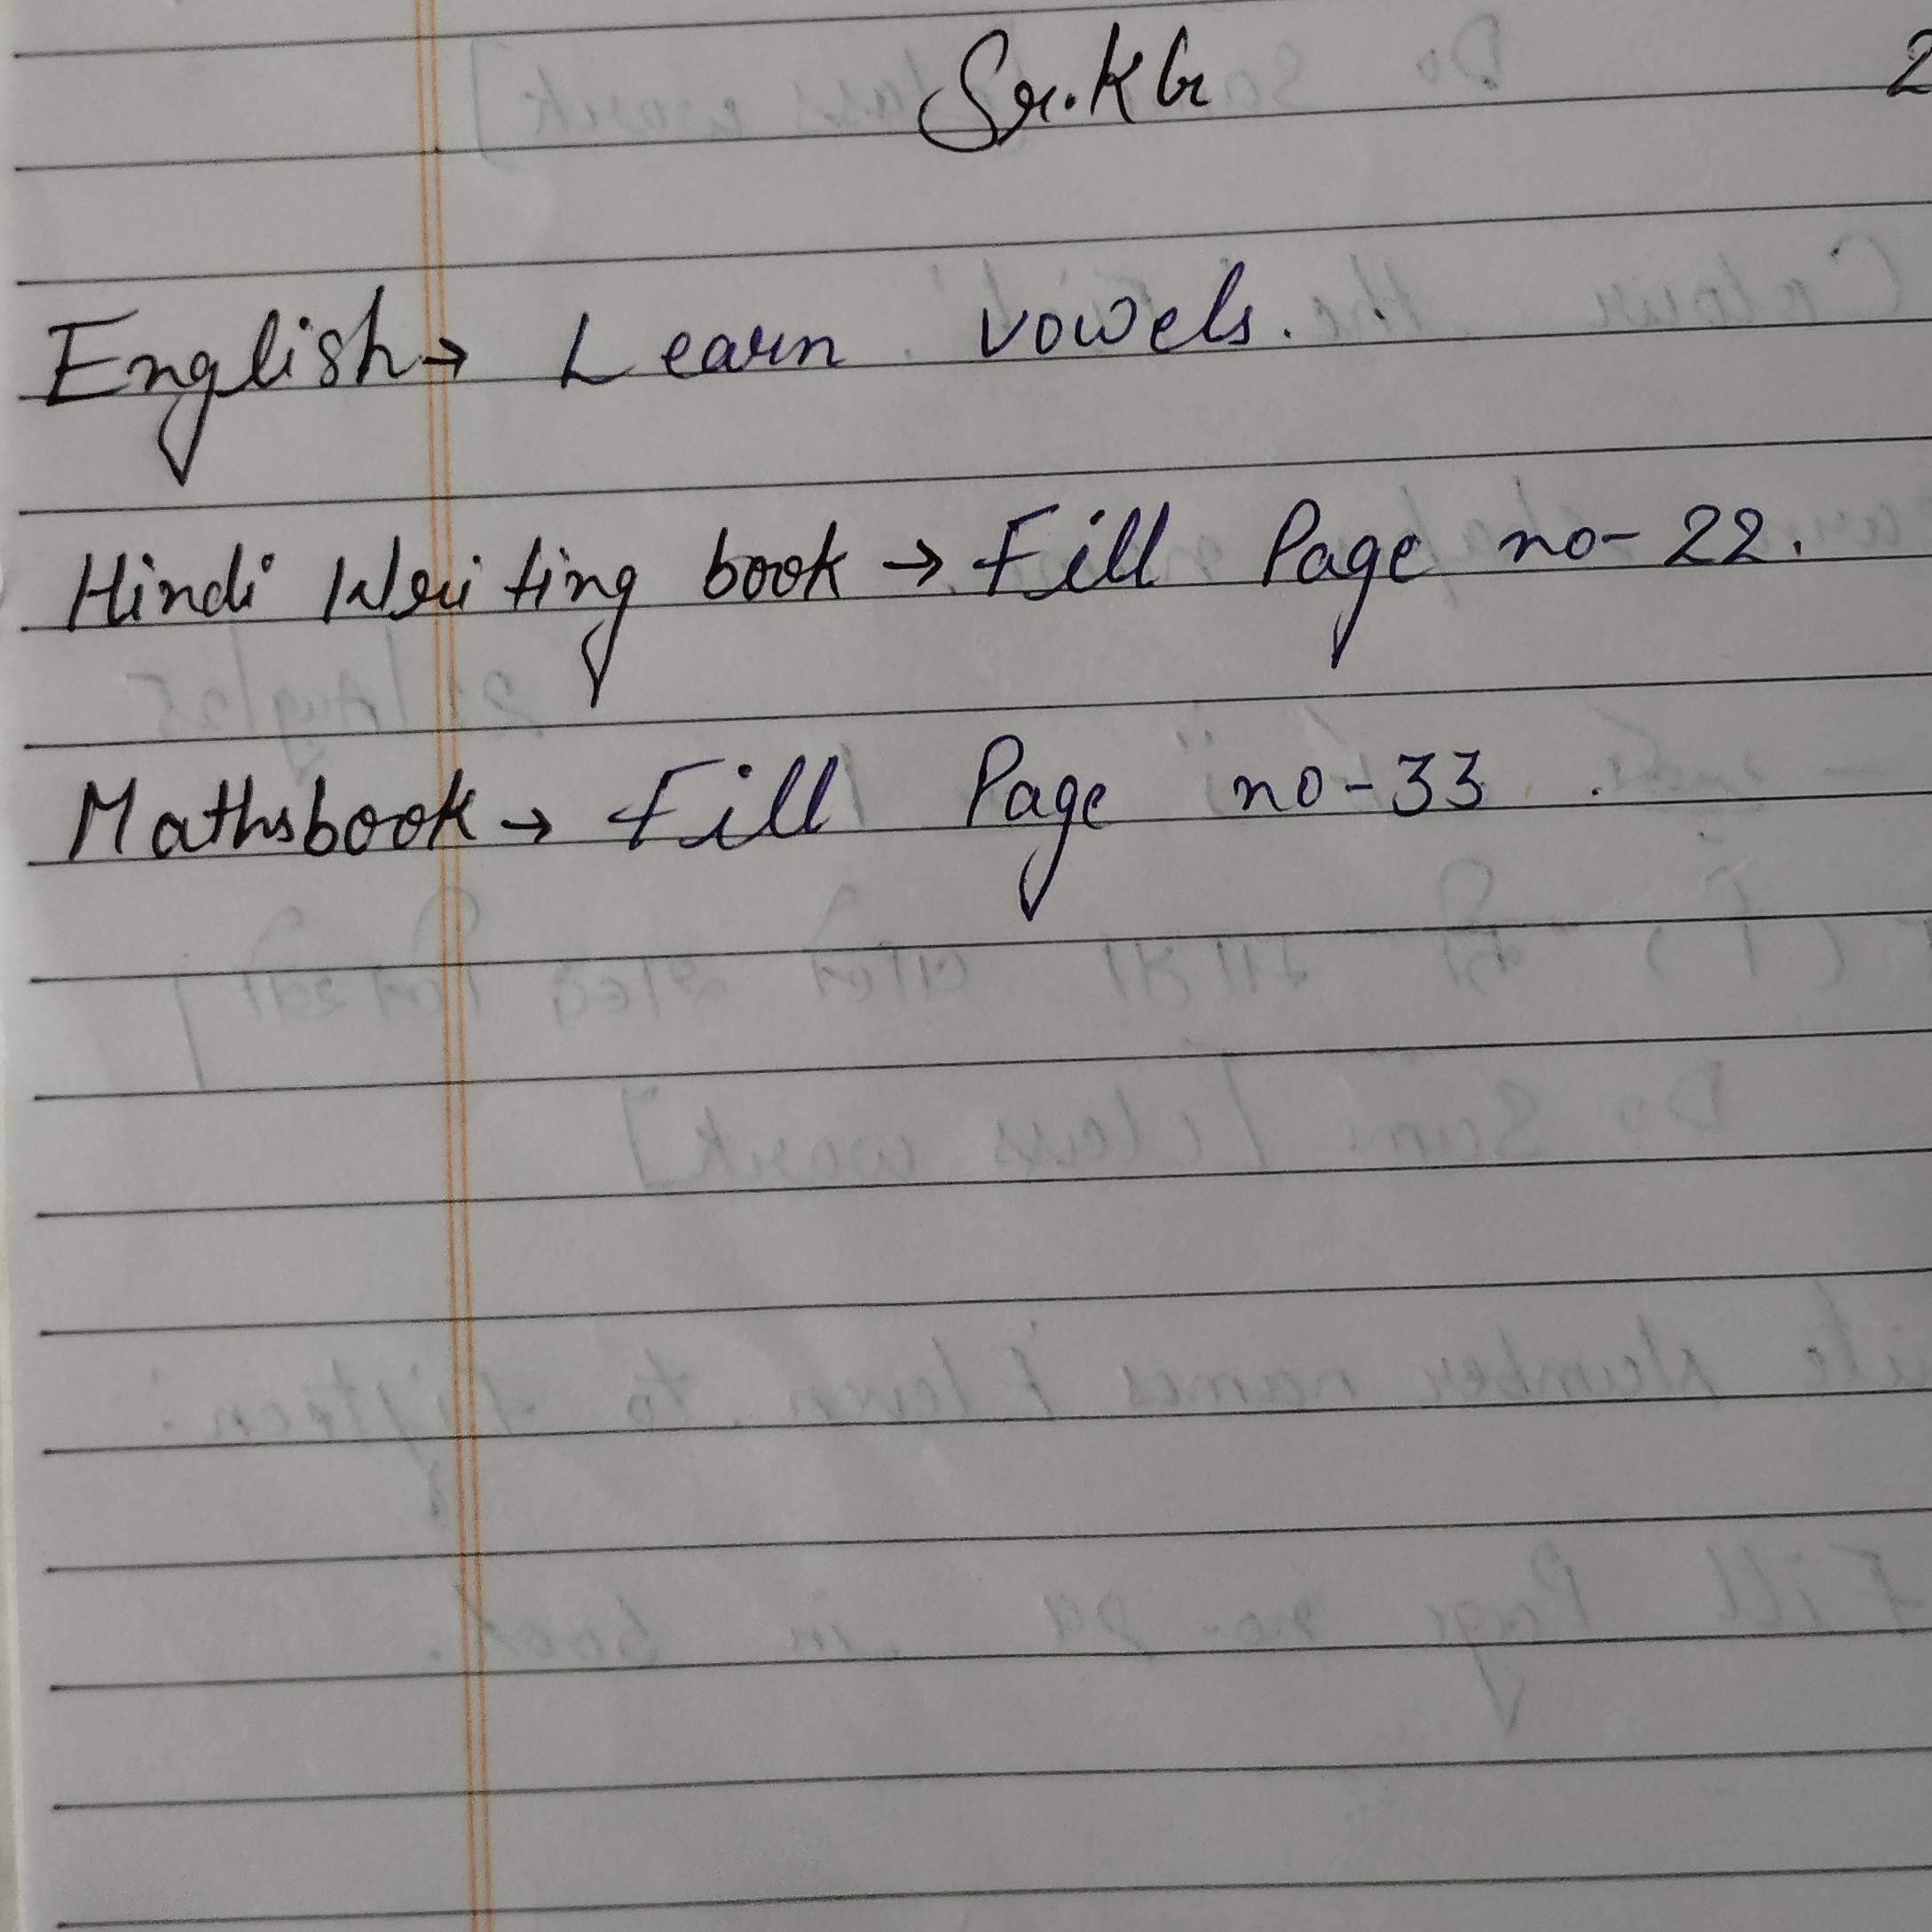 Sr.KG 2
English→ Learn vowels.
Hindi Writing book → Fill Page no-22.
Mathsbook→ Fill Page no-33.